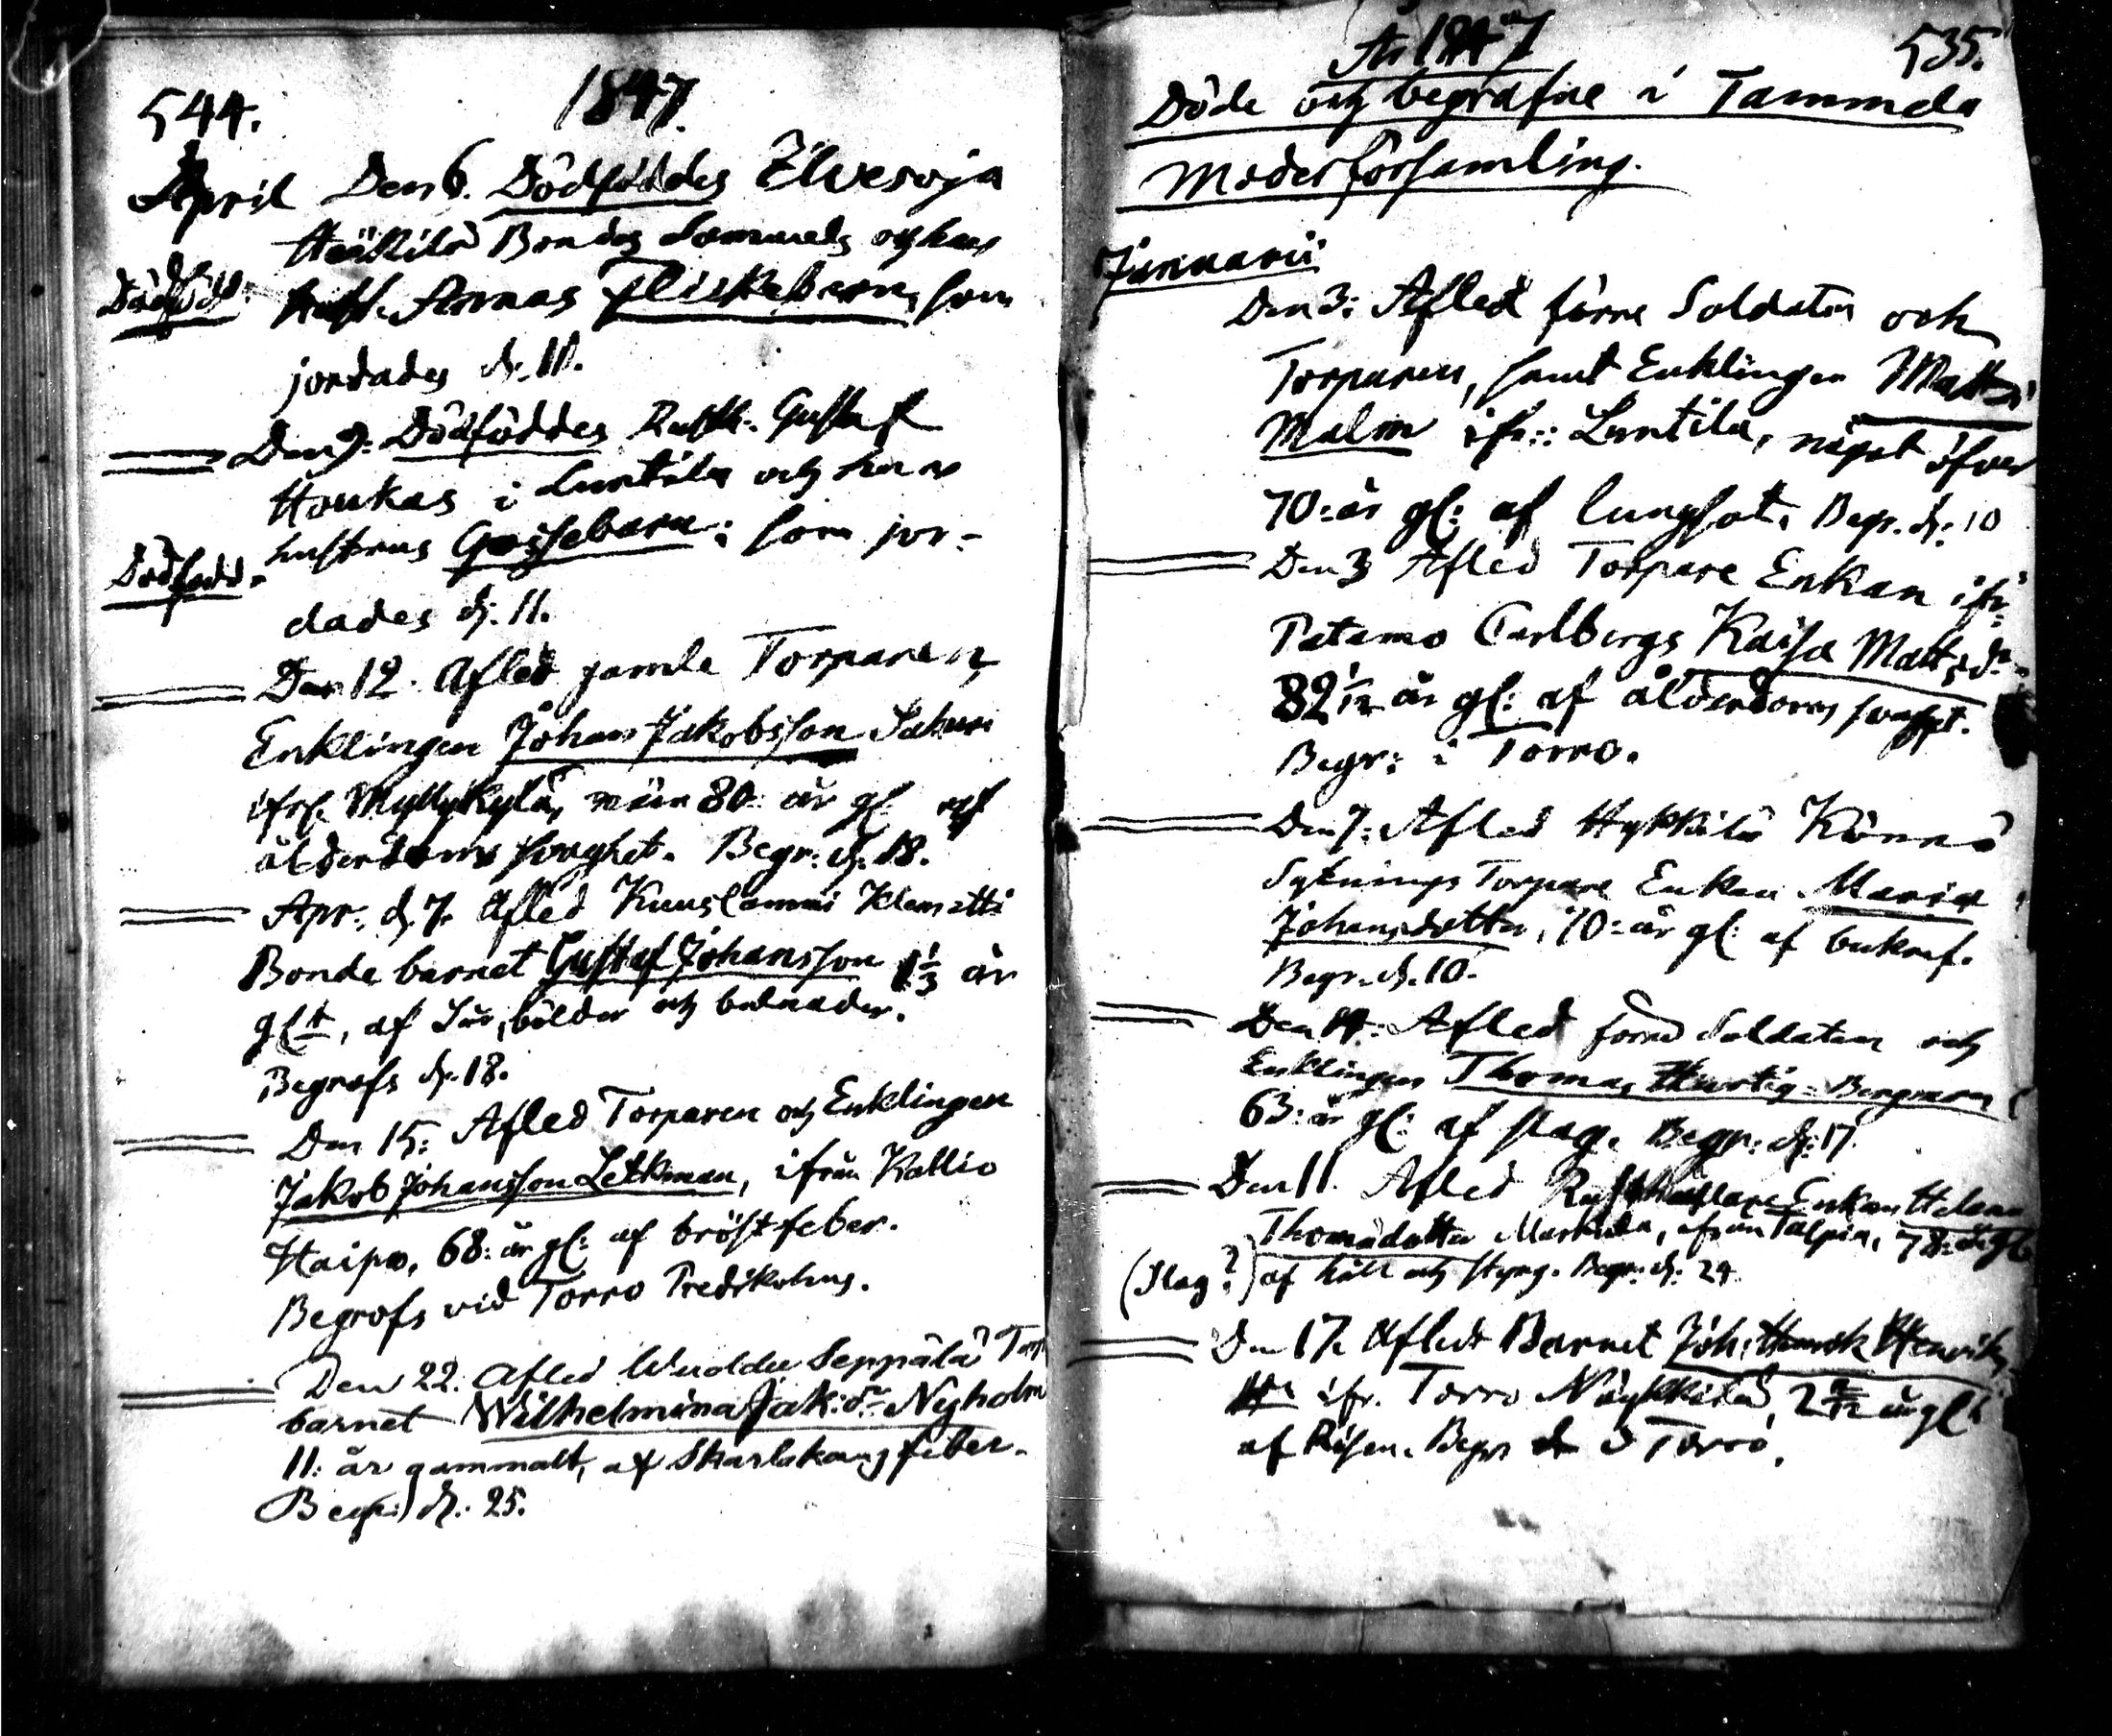 544.
1847.
April Den 6. Dödföddes Elvesoja
Häikilä Bondes Sammels och hans
hust. Annas Flickebarn, som
Dödföd:
jordades d. 11.
Den 9: Dödföddes Rusth. Gustaf
Houkas i Luntila och hans
hustrus Gossebarn: som jor-
Dödfödd.
dades d: 11.
Den 12. Afled gamle Torparen
Enklingen Johan Jakobsson
ifr. Myllykylä, nära 80 år gl. af
ålderdoms svaghet. Begr: d. 18.
Apr. d. 7. Afled Kuuslammi Klemetti
Bonde barnet Gustaf Johansson 1 1/3 år
glt, af Sår, bölder och bulnader.
Begrofs d. 18.
Den 15: Afled Torparen och Enklingen
Jakob Johansson Letkman, ifrån Kallio
Haipo, 68: år gl: af bröstfeber.
Begrofs vid Torro Predikohus.
Den 22. Afled Seppälä Torp
barnet Wilhelmina Jak: dr Nyholm
11: år gammalt, af Skarlakans feber.
Begr: d. 25.
År 1847
535.
Döde och begrafne i Tammela
Moderförsamling.
Januarii
Den 3: Afled förre Soldaten och
Torparen, samt Enklingen Matts
Malm ifr:: Luntila, något öfver
70: år gl: af lungsot. Begr. d: 10
Den 3 Afled Torpare Enkan ifr.
Patamo Carlbergs Kaisa Matts dr
82 1/12 år gl: af ålderdoms svaght.
Begr: i Torro.
Den 7: Afled Hykkilä Könnö
Sytnings Torpare Enkan Maria
Johansdotter, 70: år gl: af
Begr. d. 10.
Den 14: Afled förre Soldaten och
Enklingen Thomas Hurtig-Bergman
63: år gl: af slag. Begr: d: 17.
Den 11. Afled Rusthållare Enkan Helena
Thomädotter Markula, ifrån Talpia, 78: år gl:
(Slag?) af håll och styng. Begr: d: 24
Den 17. Afled Barnet Joh: Henrik Henriks
ifr. Torro Näykkilä, 2 år gl:
af Risen. Begr i Torro.